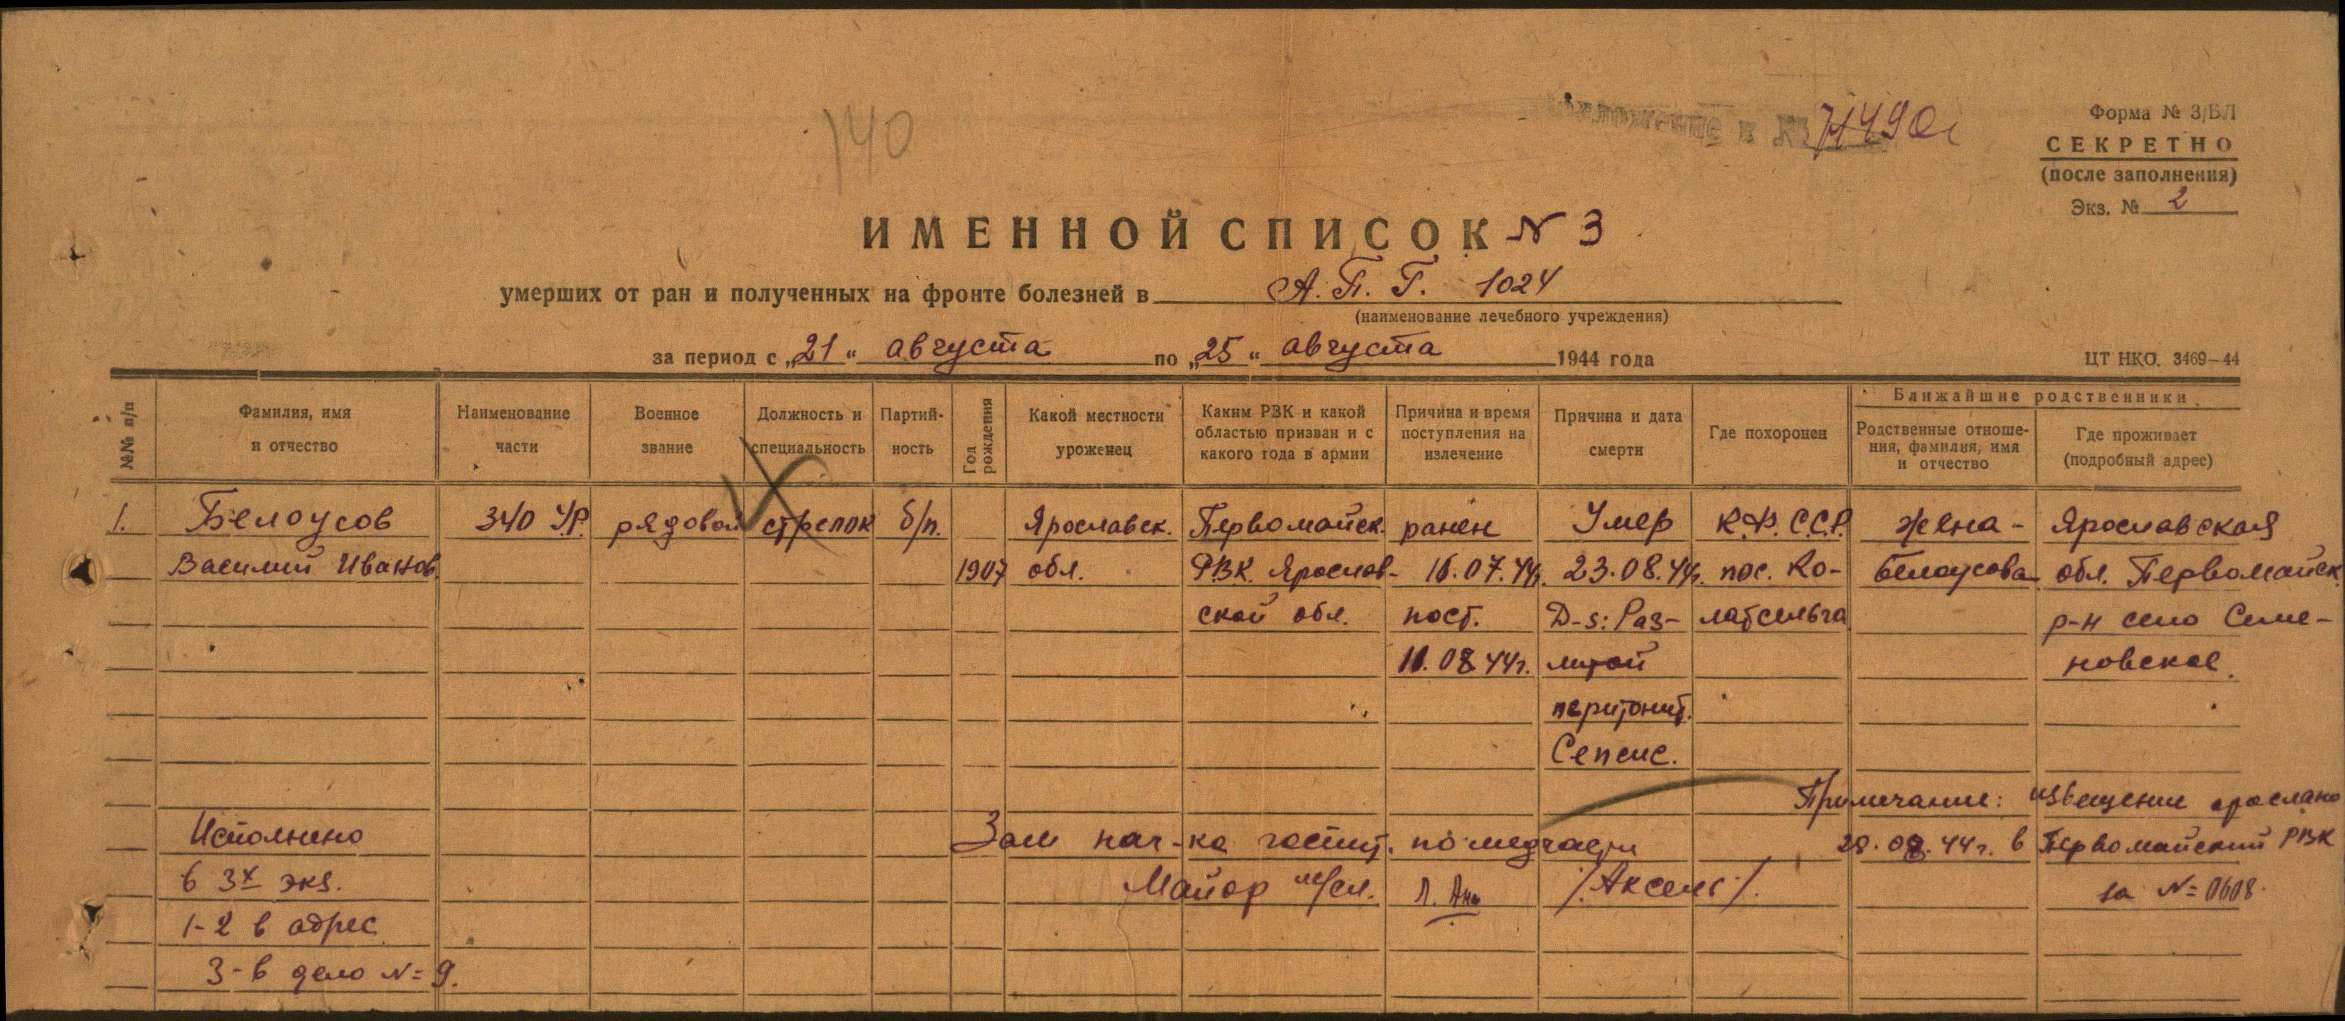 140
Приложение к № 71490с
Форма № 3/БЛ
СЕКРЕТНО
(после заполнения)
Экз. № 2
ИМЕННОЙ СПИСОК N 3
умерших от ран и полученных на фронте болезней в А.П.Г. 1024
(наименование лечебного учреждения)
за период с „21“ августа по „25“ августа 1944 года
ЦТ НКО. 3469—44
№№ п/п
Фамилия, имя
и отчество
Наименование
части
Военное
звание
Должность и
специальность
Партий-
ность
Год
рождения
Какой местности
уроженец
Каким РВК и какой
областью призван и с
какого года в армии
Причина и время
поступления на
излечение
Причина и дата
смерти
Где похоронен
Ближайшие родственники
Родственные отноше-
ния, фамилия, имя
и отчество
Где проживает
(подробный адрес)
1. Белоусов 340 УР. рядовой стрелок б/п. Ярославск. Первомайск. ранен Умер К.Ф.С.С.Р. жена - Ярославская
Василий Иванов. 1907 обл. РВК. Ярослав- 16.07.44г. 23.08.44г. пос. Ко- Белоусова обл. Первомайск.
ской обл. пост. D-s: Раз- латсельга р-н село Семе-
11.08.44г. литой новское.
перитонит.
Сепсис.
Примечание: извещение прослано
Исполнено Зам нач-ка госпит. по медчасти 28.08.44г. в Первомайский РВК
в 3х экз. Майор м/сл. /Аксель/. за N= 0608.
1-2 в адрес
3-в дело N= 9.